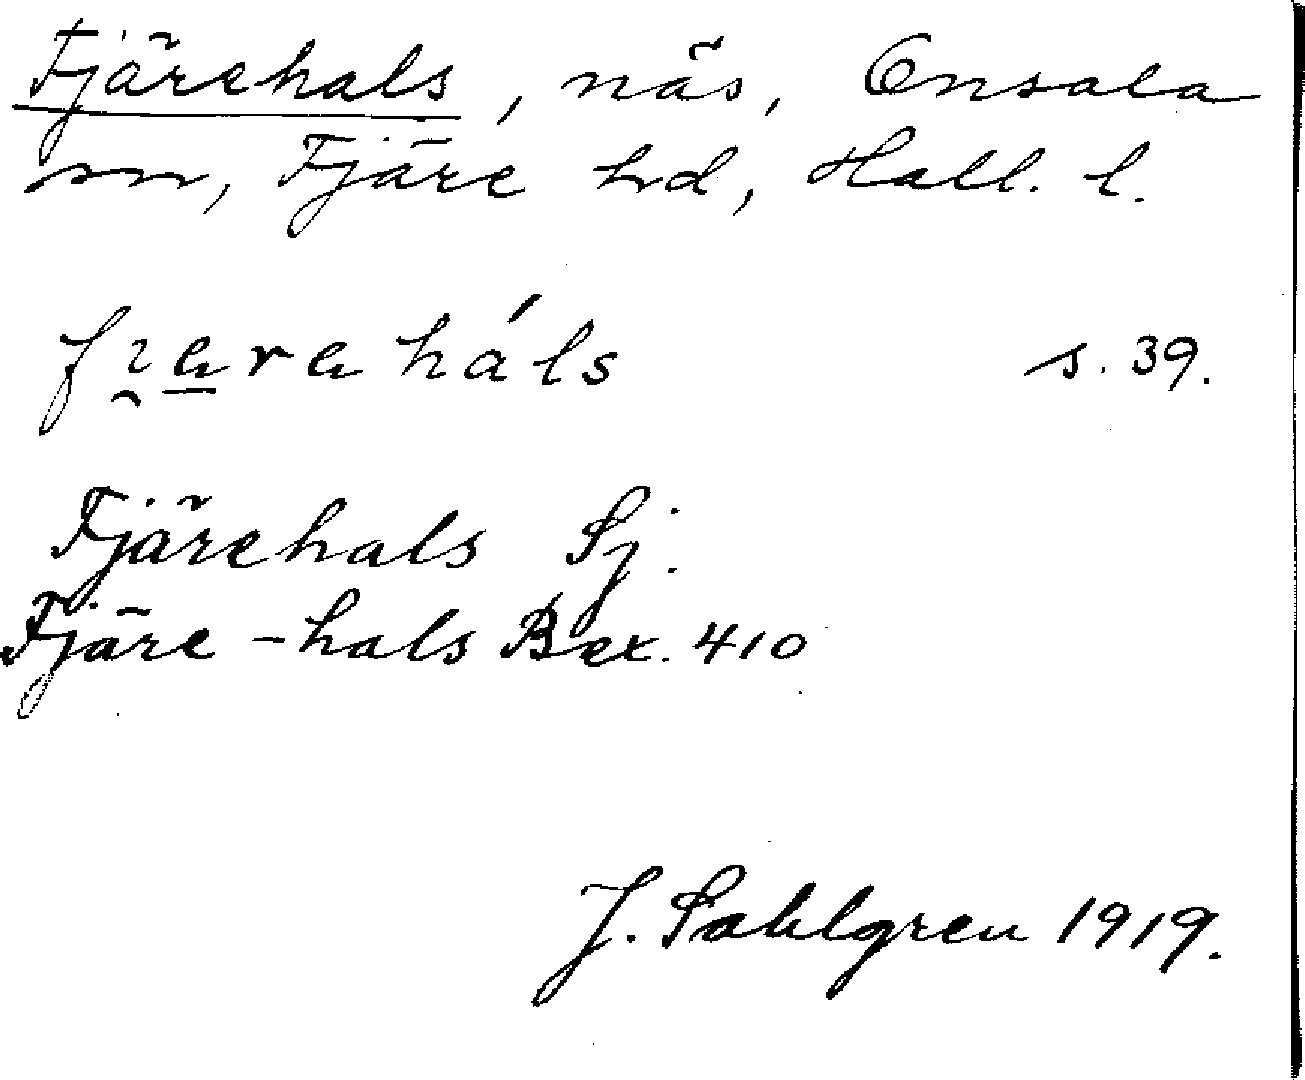 Fjärehals, näs, Onsala
sn, Fjäre hd, Hall. l.
s. 39.
Fjärehals Sj.
Fjäre-hals Bex. 410
J. Sahlgren 1919.